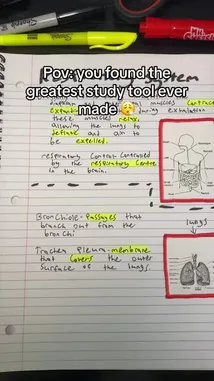 Sharpie
Pov: you found the
greatest study tool ever
made
stem
diaphragm muscles contract
exhalation
these muscles relax,
allowing the lungs to
deflate and air to
be expelled.
respiratory control: controlled
by the respiratory centre
in the brain.
Bronchiole- Passages that
branch out from the
bronchi
lungs
Trachea Pleura- membrane
that covers the outer
surface of the lungs.